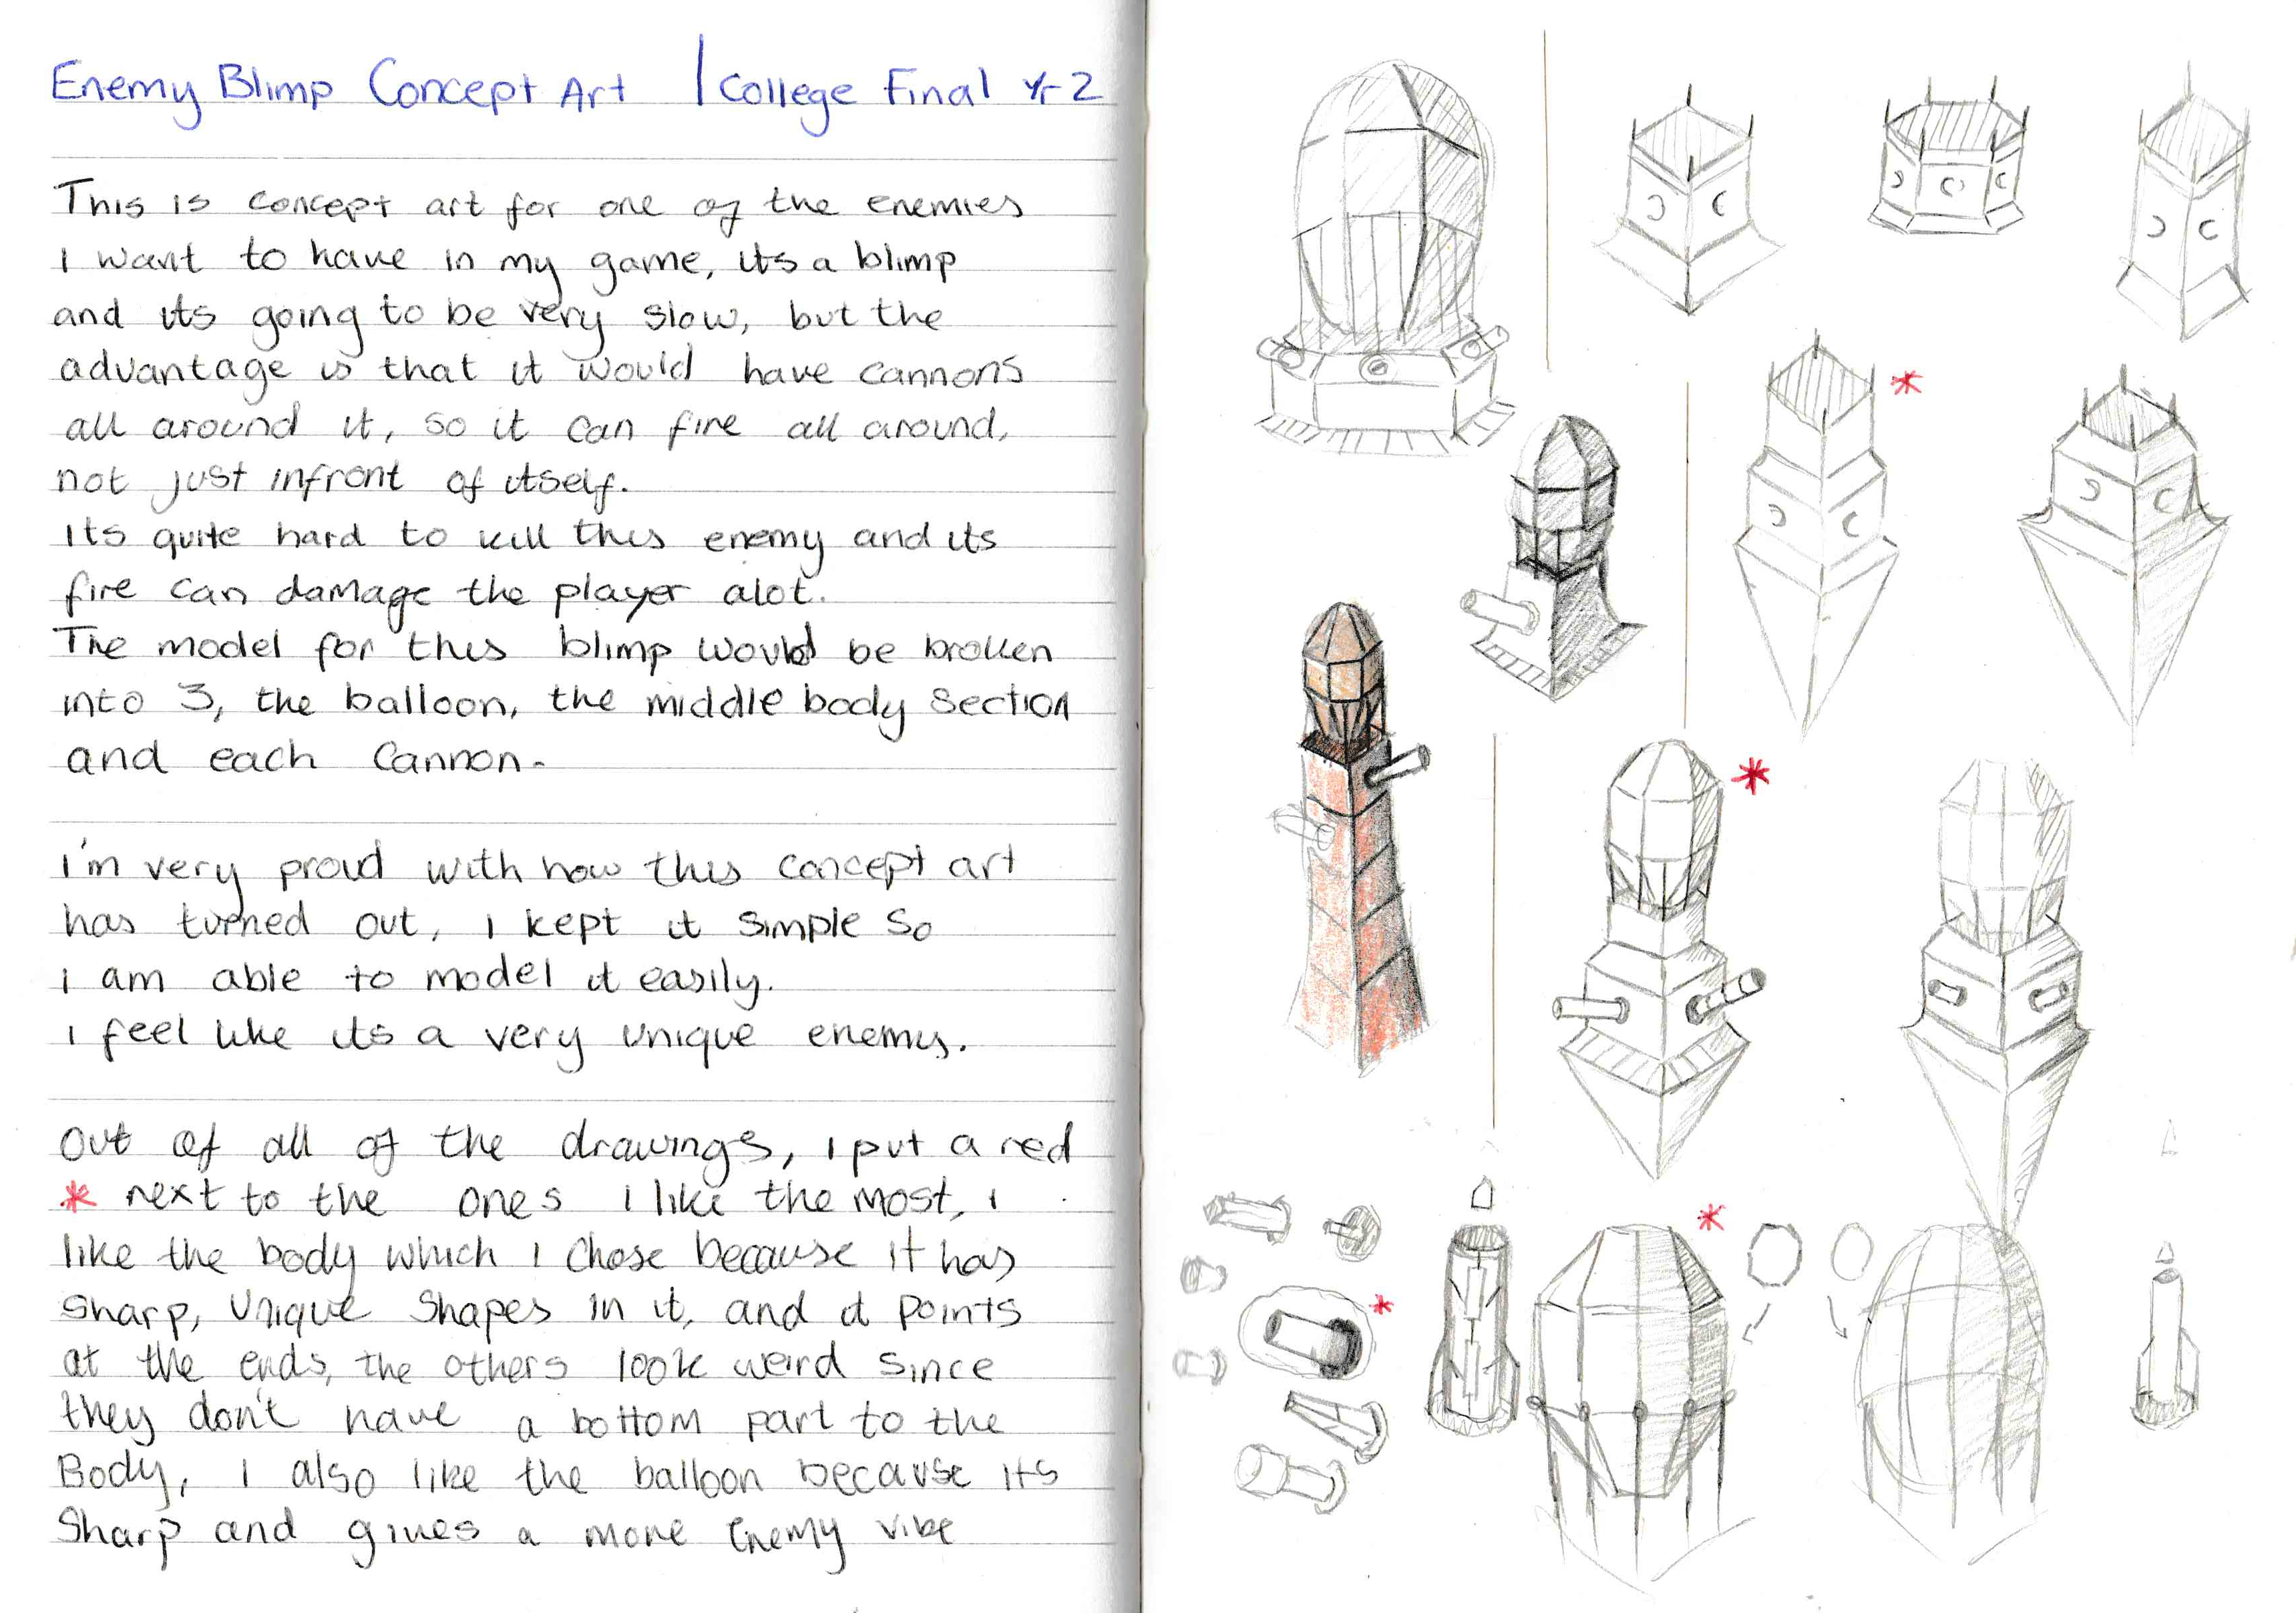 Enemy Blimp Concept Art | College Final Yr 2
This is concept art for one of the enemies
I want to have in my game, its a blimp
and its going to be very slow, but the
advantage is that it would have cannons
all around it, so it can fire all around,
not just infront of itself.
Its quite hard to kill this enemy and its
fire can damage the player alot.
The model for this blimp would be broken
into 3, the balloon, the middle body section
and each cannon.
I'm very proud with how this concept art
has turned out, I kept it simple so
I am able to model it easily.
I feel like its a very unique enemy.
Out of all of the drawings, I put a red
* next to the ones I like the most, I
like the body which I chose because it has
sharp, unique shapes in it, and it points
at the ends, the others look weird since
they don't have a bottom part to the
Body, I also like the balloon because its
sharp and gives a more enemy vibe